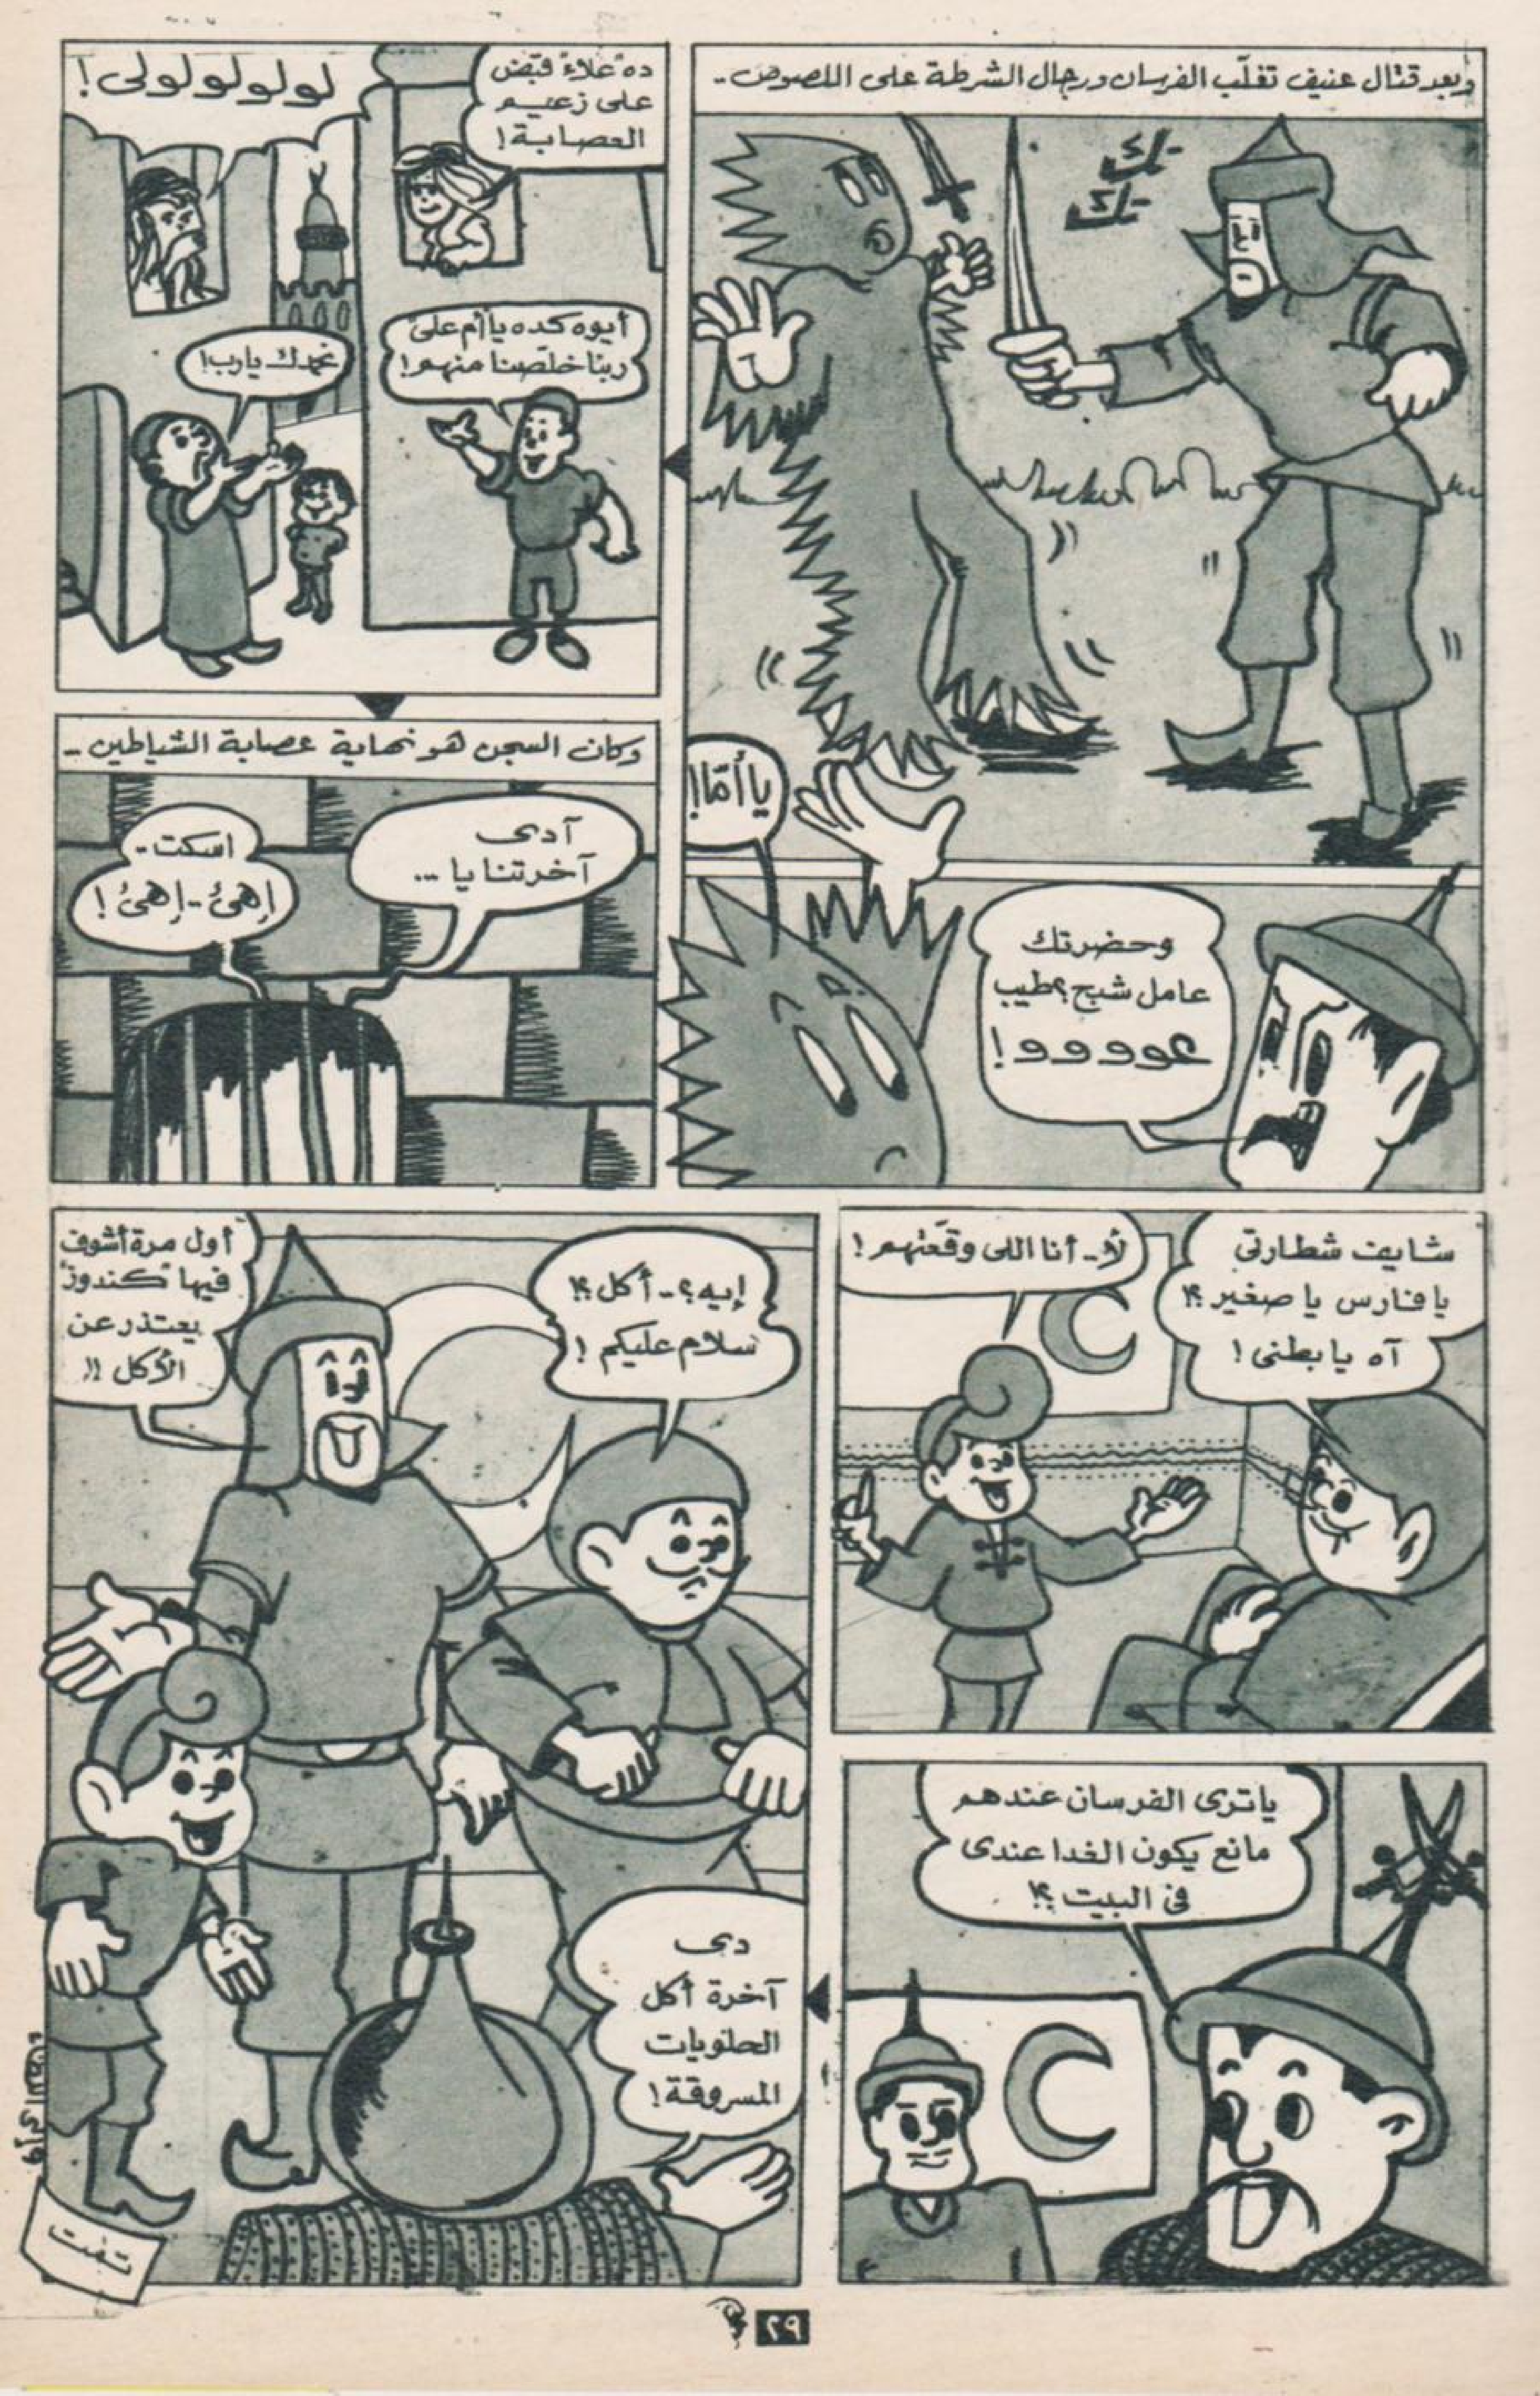 وبعد قتال عنيف تغلّب الفرسان ورجال الشرطة على اللصوص..
تك
تك
يا أمّا!
وحضرتك
عامل شبح؟ طيب
عووووو!
ده "علاء" قبض
على زعيم
العصابة!
لولولولولى!
أيوه كده يا أم على
ربنا خلّصنا منهم!
نحمدك يارب!
وكان السجن هو نهاية عصابة الشياطين..
آدى
آخرتنا يا ...
اسكت..
إهئ.. إهئ!
شايف شطارتى
يا فارس يا صغير؟!
آه يا بطنى!
لأ.. أنا اللى وقعتهم!
ياترى الفرسان عندهم
مانع يكون الغدا عندى
فى البيت؟!
إيه؟.. أكل؟!
سلام عليكم!
أول مرة أشوف
فيها "كندوز"
يعتذر عن
الأكل!!
دى
آخرة أكل
الحلويات
المسروقة!
تمت
٢٩